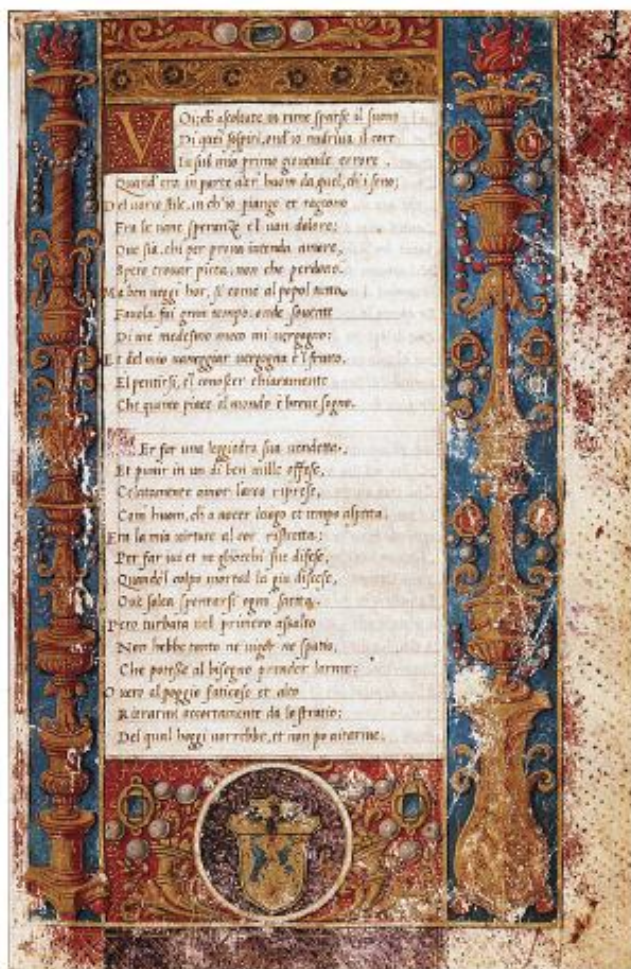 2
Voi; ch ascoltate in rime sparse il suono
Di quei sospiri, ond io nudriua il core
In sul mio primo giouenile errore,
Quand' ero in parte altr' huom da quel, ch' i sono;
Del uario stile, in ch' io piango et ragiono
Fra le uane speranze e'l uan dolore;
Oue sia, chi per proua intenda amore,
Spero trouar pieta, non che perdono.
Ma ben ueggi hor, si come al popol tutto
Fauola fui gran tempo: onde souente
Di me medesmo meco mi uergogno:
Et del mio uaneggiar uergogna e'l frutto,
El pentirsi, e'l conoscer chiaramente
Che quanto piace al mondo è breue sogno.
Per far una leggiadra sua uendetta,
Et punir in un di ben mille offese,
Celatamente amor larco riprese,
Com huom, ch a nocer luogo et tempo aspetta.
Era la mia uirtute al cor ristretta;
Per far iui et ne gliocchi sue difese,
Quand'el colpo mortal la giu discese,
Oue solea spuntarsi ogni saetta.
Pero turbata nel primiero assalto
Non hebbe tanto ne uigor ne spatio,
Che potesse al bisogno prender larme;
O uero al poggio faticoso et alto
Ritrarmi accortamente da lo stratio;
Del qual hoggi uorrebbe, et non po aitarme.